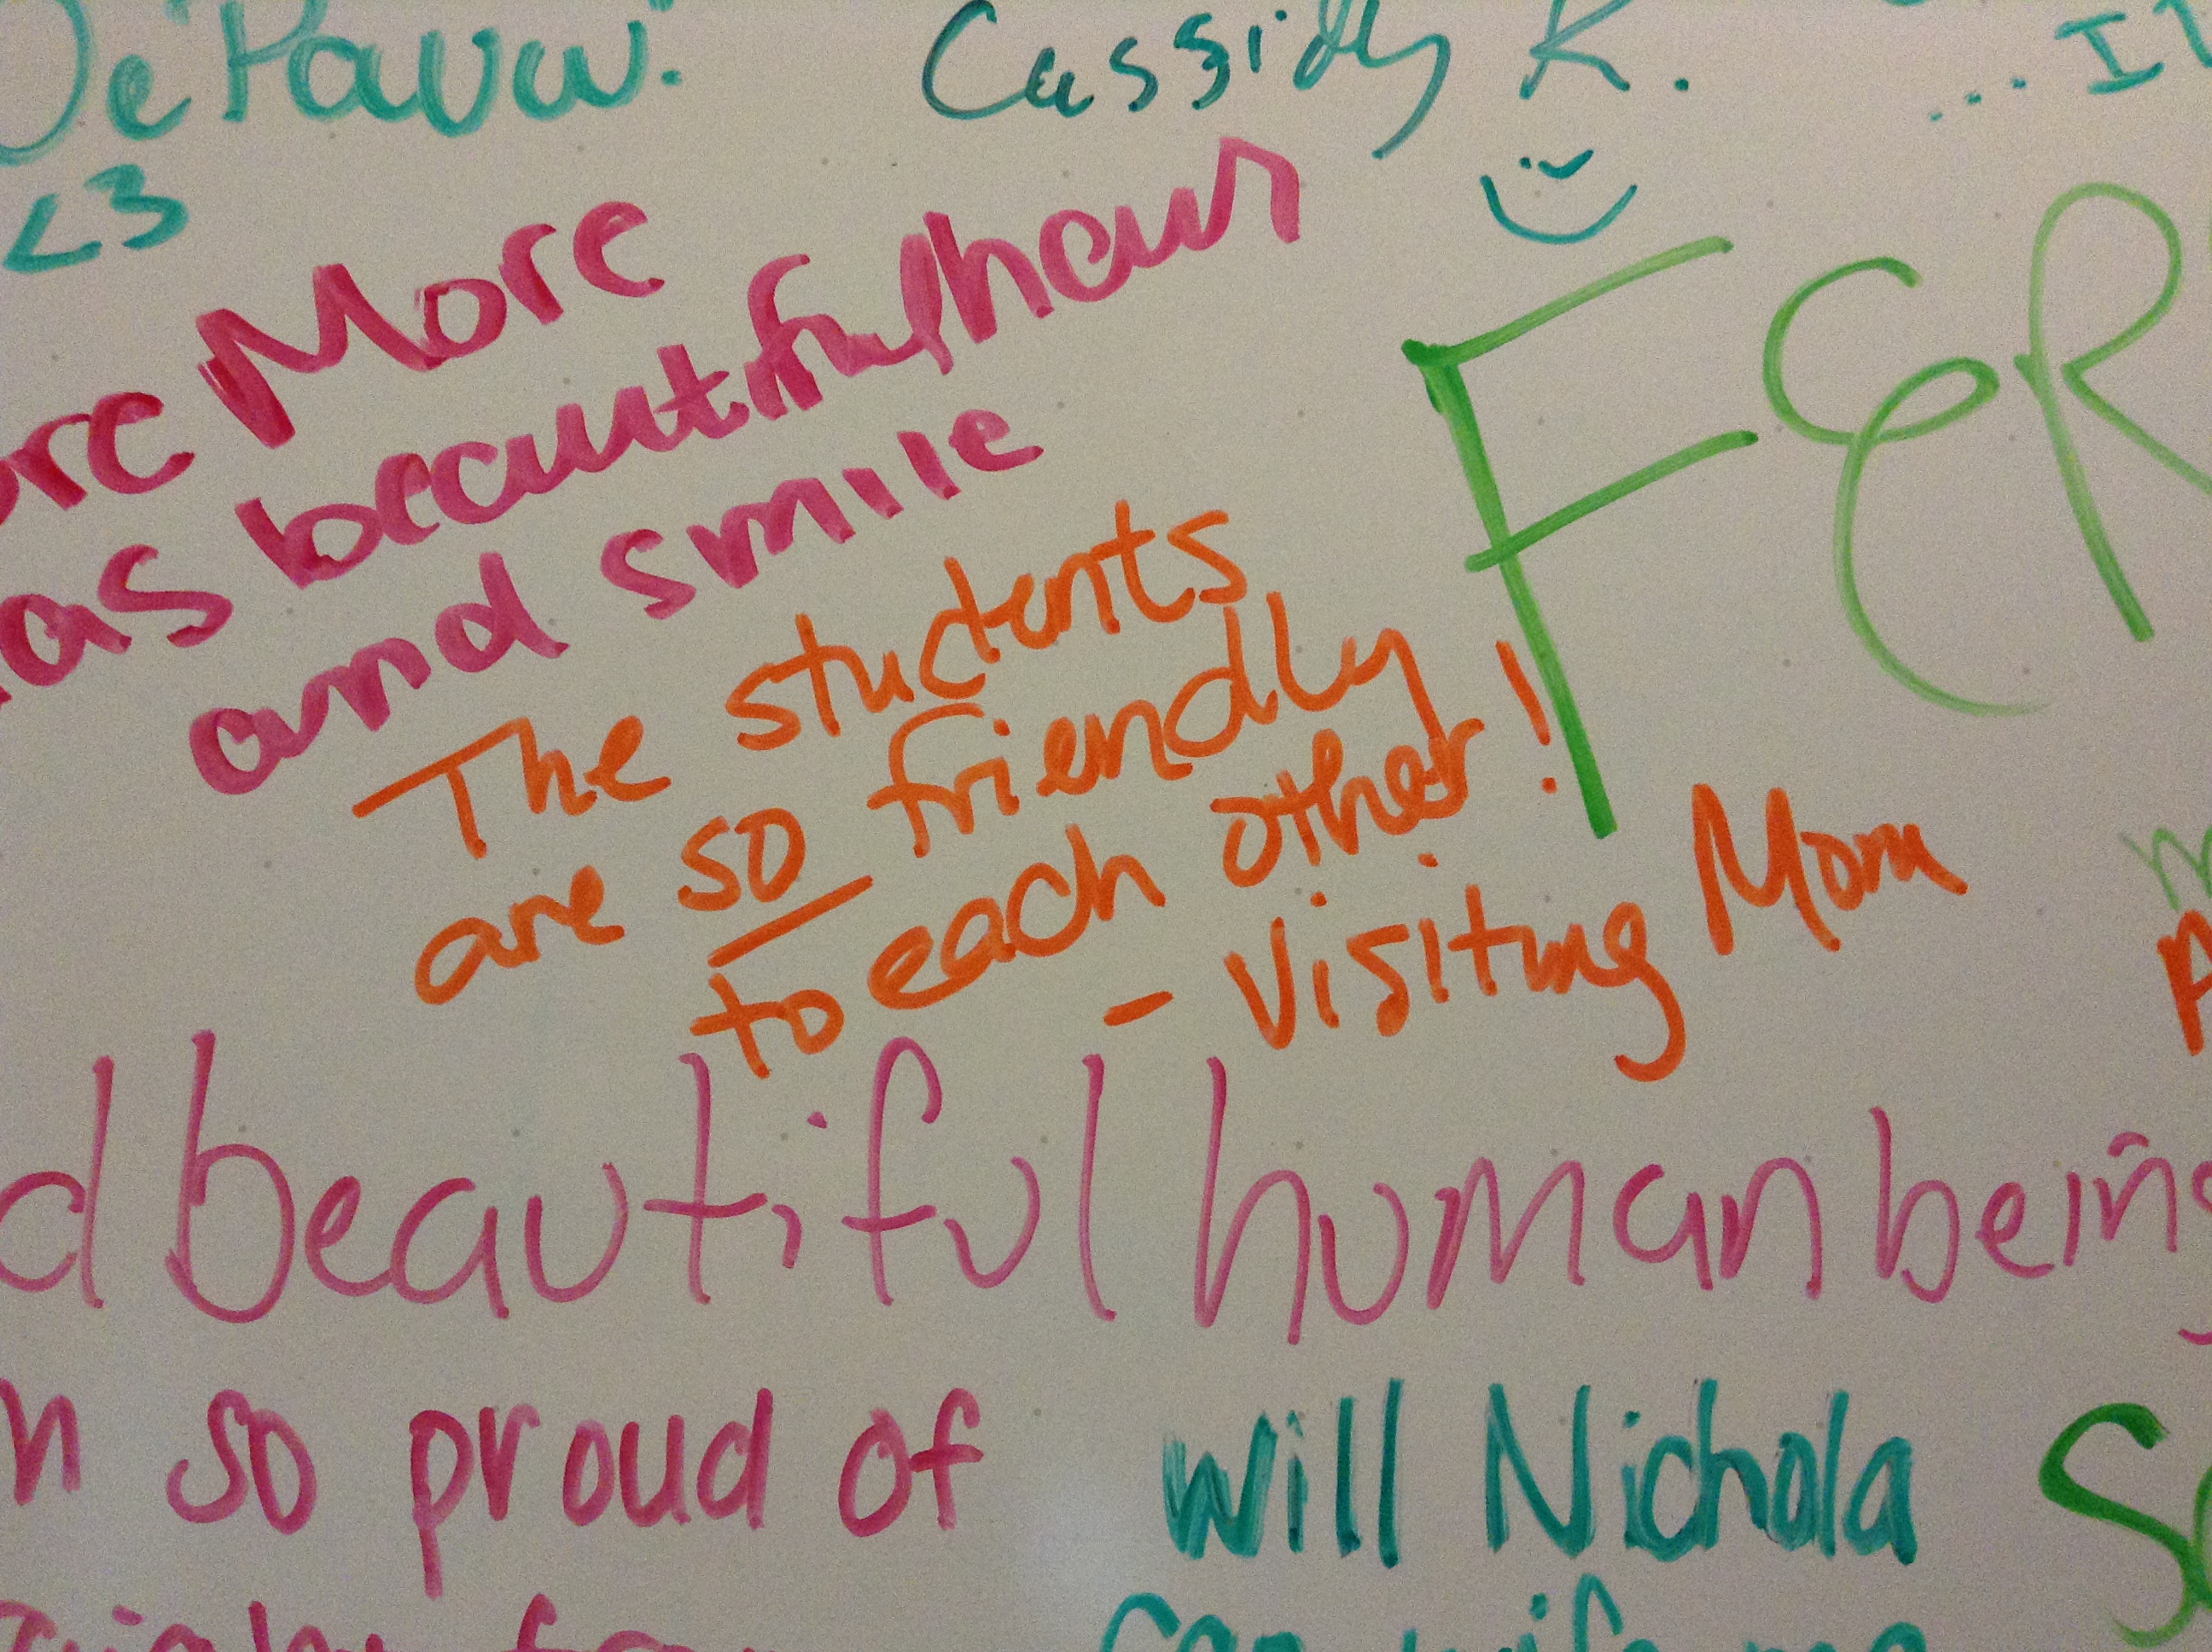 DePauw.
<3
Cassidy K.
... I
More
as beautiful hair
and smile
FER
The students
are so friendly
to each other!
- Visiting Mom
beautiful human being
so proud of
Will Nichola
can wife me